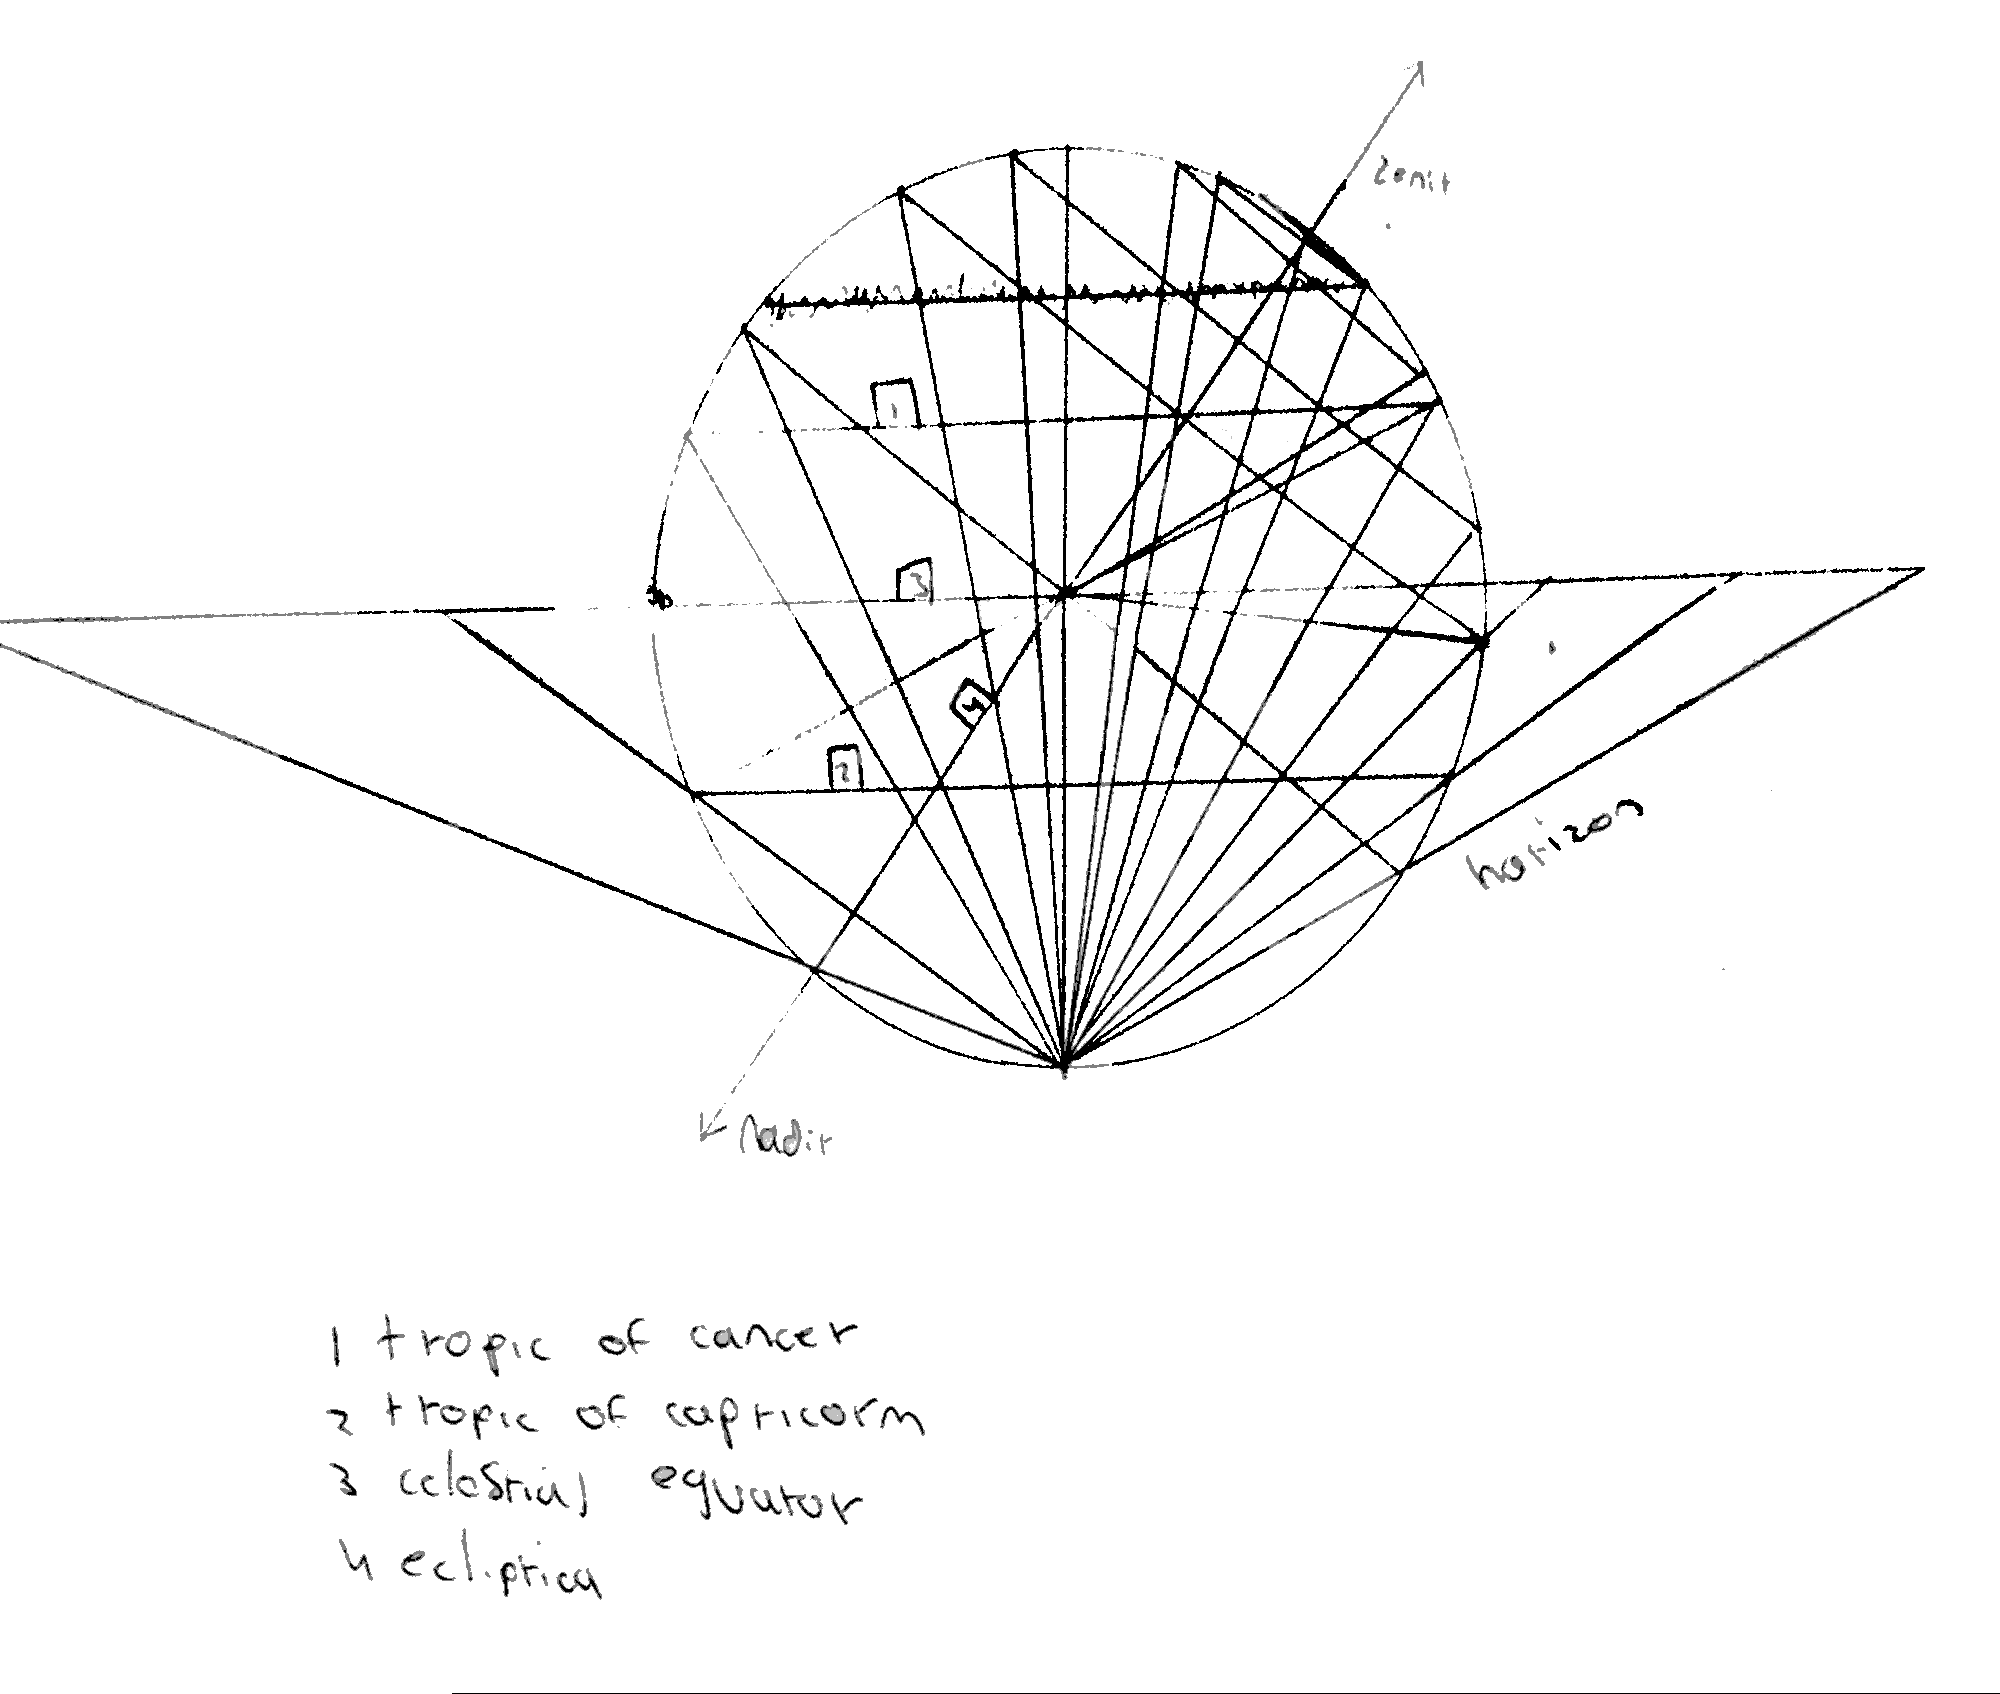 zenit
1
3
4
2
horizon
nadir
1 tropic of cancer
2 tropic of capricorm
3 celestrial equator
4 ecliptica